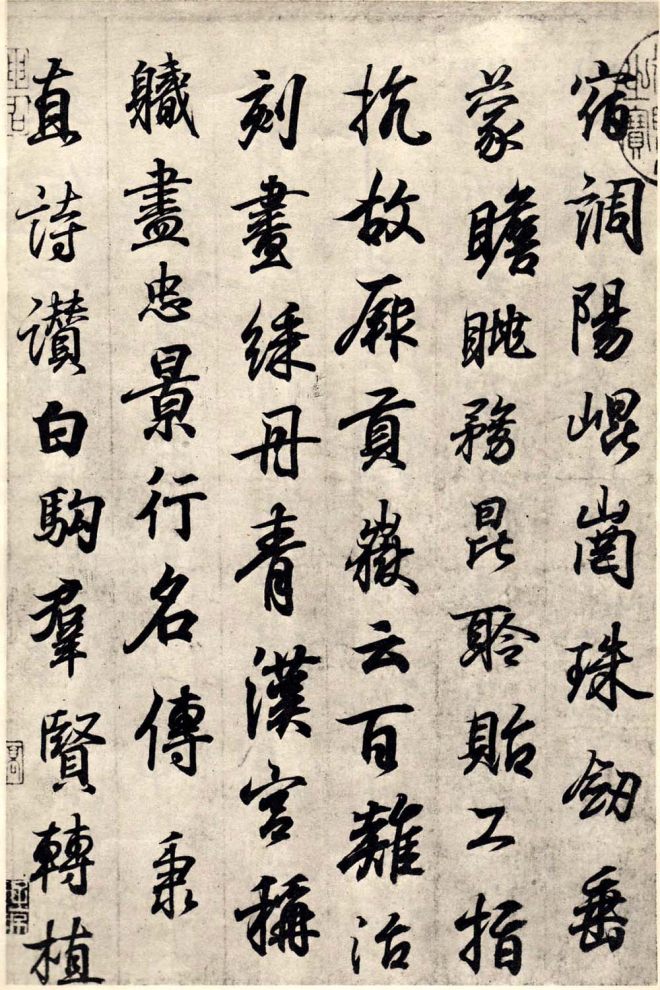 宿調陽崐崗珠劒垂
蒙瞻眺務昆聆貽工指
抗故厥貢嶽云百離治
刻畫綵丹青漢宫稱
軄盡忠景行名傳秉
直詩讚白駒羣賢轉植